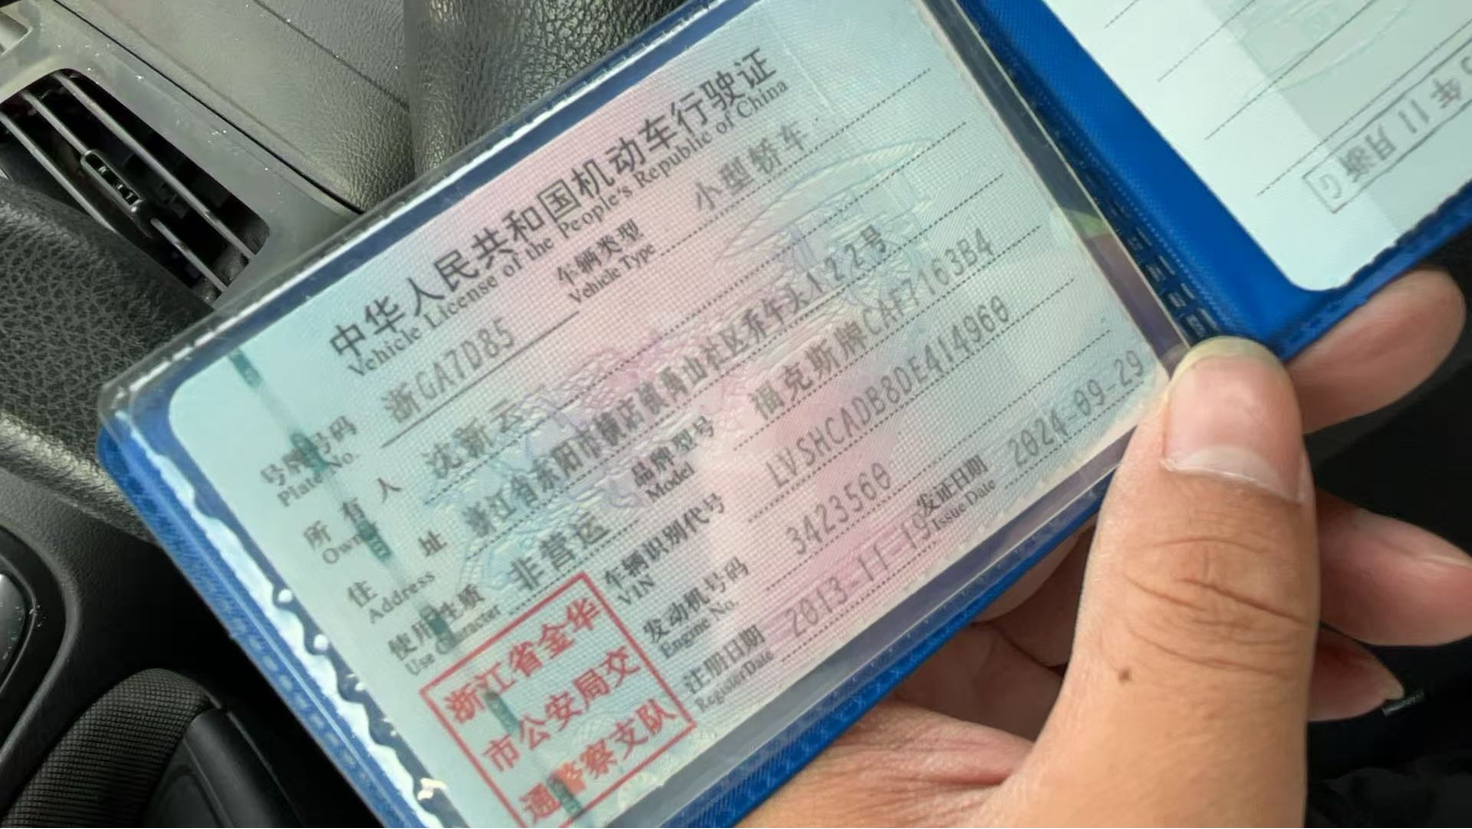 中华人民共和国机动车行驶证
Vehicle License of the People's Republic of China
号牌号码 浙GA7D85 车辆类型 小型轿车
Plate No. Vehicle Type
所有人 沈新云
Owner
住址 浙江省东阳市横店镇青山社区乔牛头122号
Address
使用性质 非营运 品牌型号 福克斯牌CAF7163B4
Use Character Model
车辆识别代号 LVSHCADB8DE414960
VIN
发动机号码 3423560
Engine No.
注册日期 2013-11-19 发证日期 2024-09-29
Register Date Issue Date
浙江省金华
市公安局交
通警察支队
年11月浙G